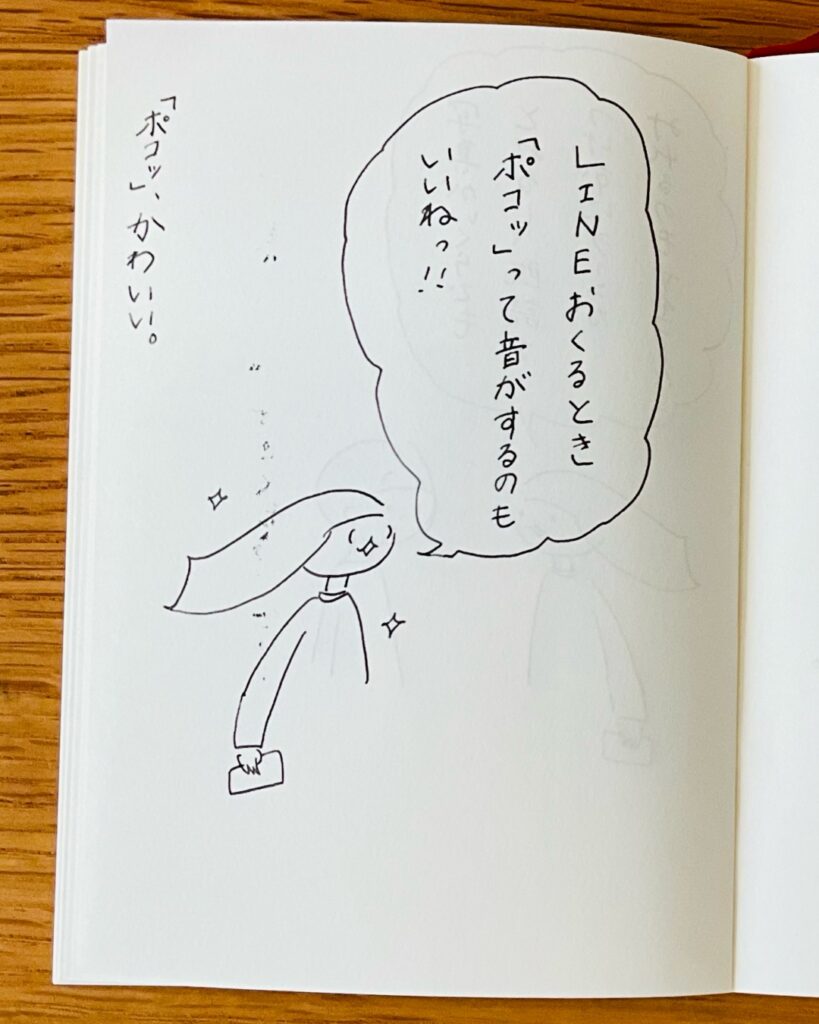 LINEおくるとき
「ポコッ」って音がするのも
いいねっ!!
「ポコッ」、かわいい。